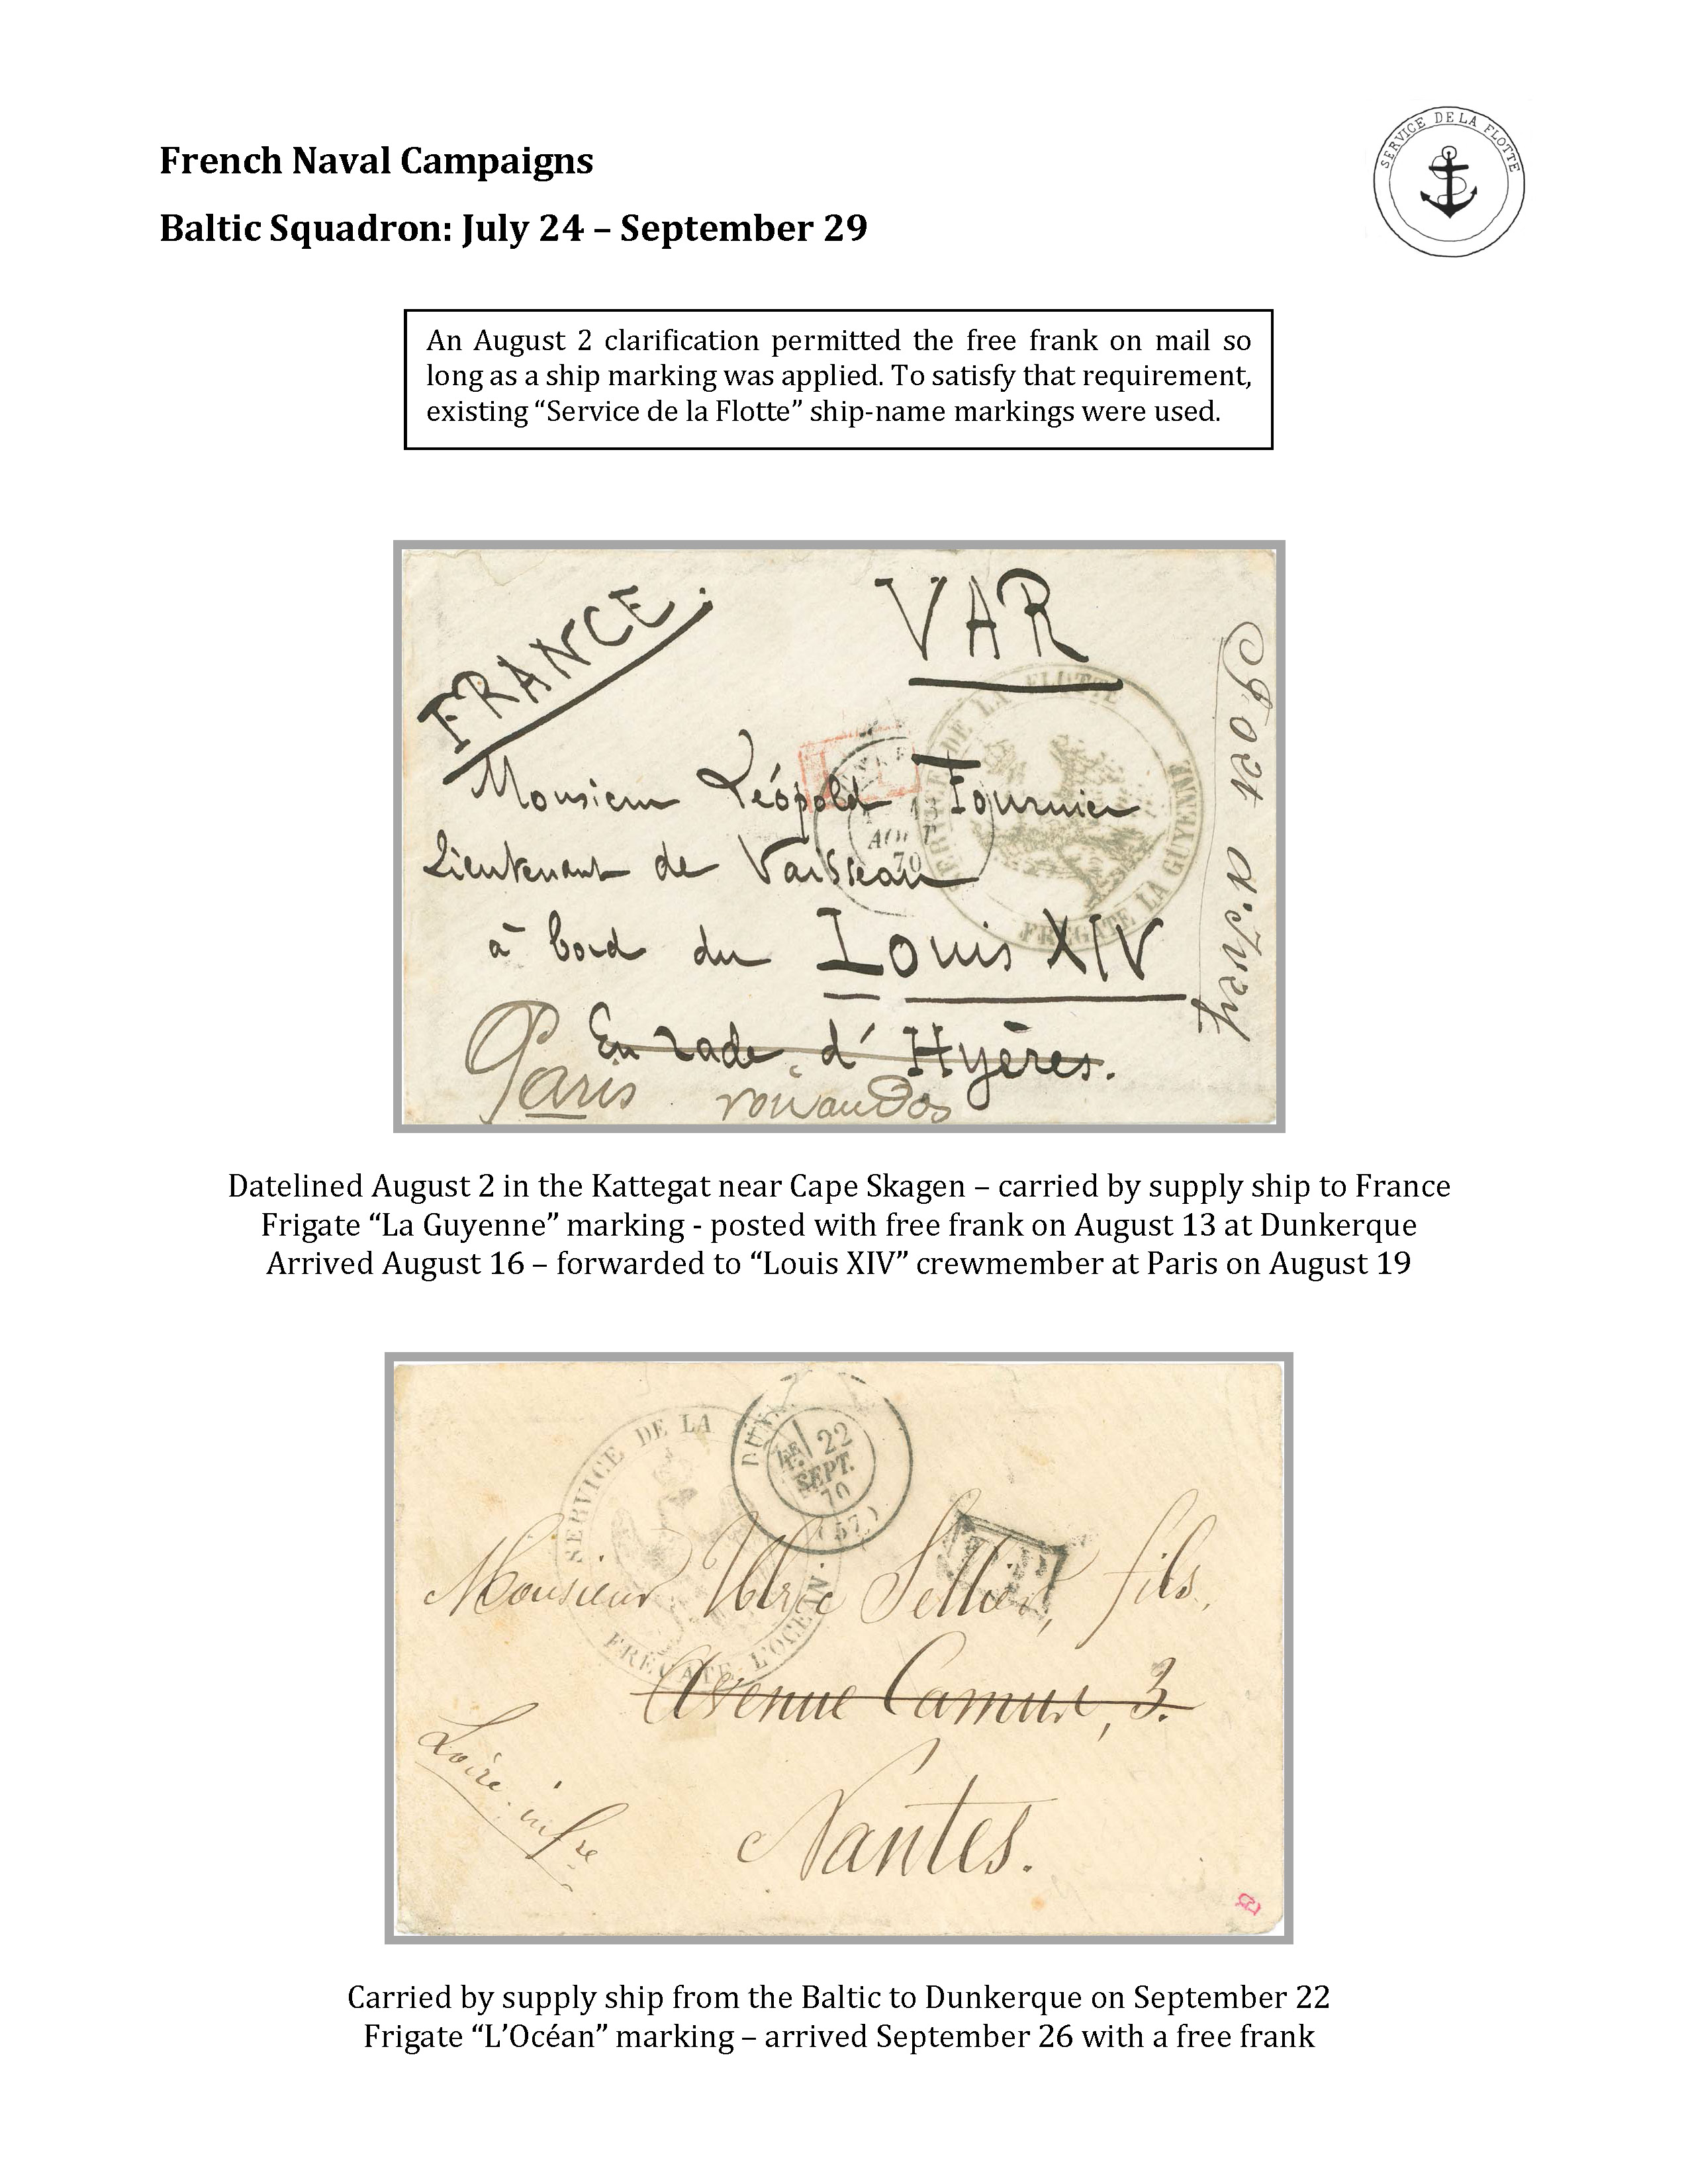 French Naval Campaigns
Baltic Squadron: July 24 – September 29
SERVICE DE LA FLOTTE
An August 2 clarification permitted the free frank on mail so
long as a ship marking was applied. To satisfy that requirement,
existing “Service de la Flotte” ship-name markings were used.
FRANCE.
VAR
SERVICE DE LA FLOTTE
FREGATE LA GUYENNE
13
AOUT
70
Monsieur Léopold Fournier
Lieutenant de Vaisseau
à bord du Louis XIV
En rade d' Hyères.
Paris
fort d'Ivry
Datelined August 2 in the Kattegat near Cape Skagen – carried by supply ship to France
Frigate “La Guyenne” marking - posted with free frank on August 13 at Dunkerque
Arrived August 16 – forwarded to “Louis XIV” crewmember at Paris on August 19
SERVICE DE LA
FREGATE L'OCEAN
22
SEPT.
70
(57)
Monsieur Sellier, fils,
Avenue Camus, 3.
Nantes.
Loire infre
Carried by supply ship from the Baltic to Dunkerque on September 22
Frigate “L’Océan” marking – arrived September 26 with a free frank